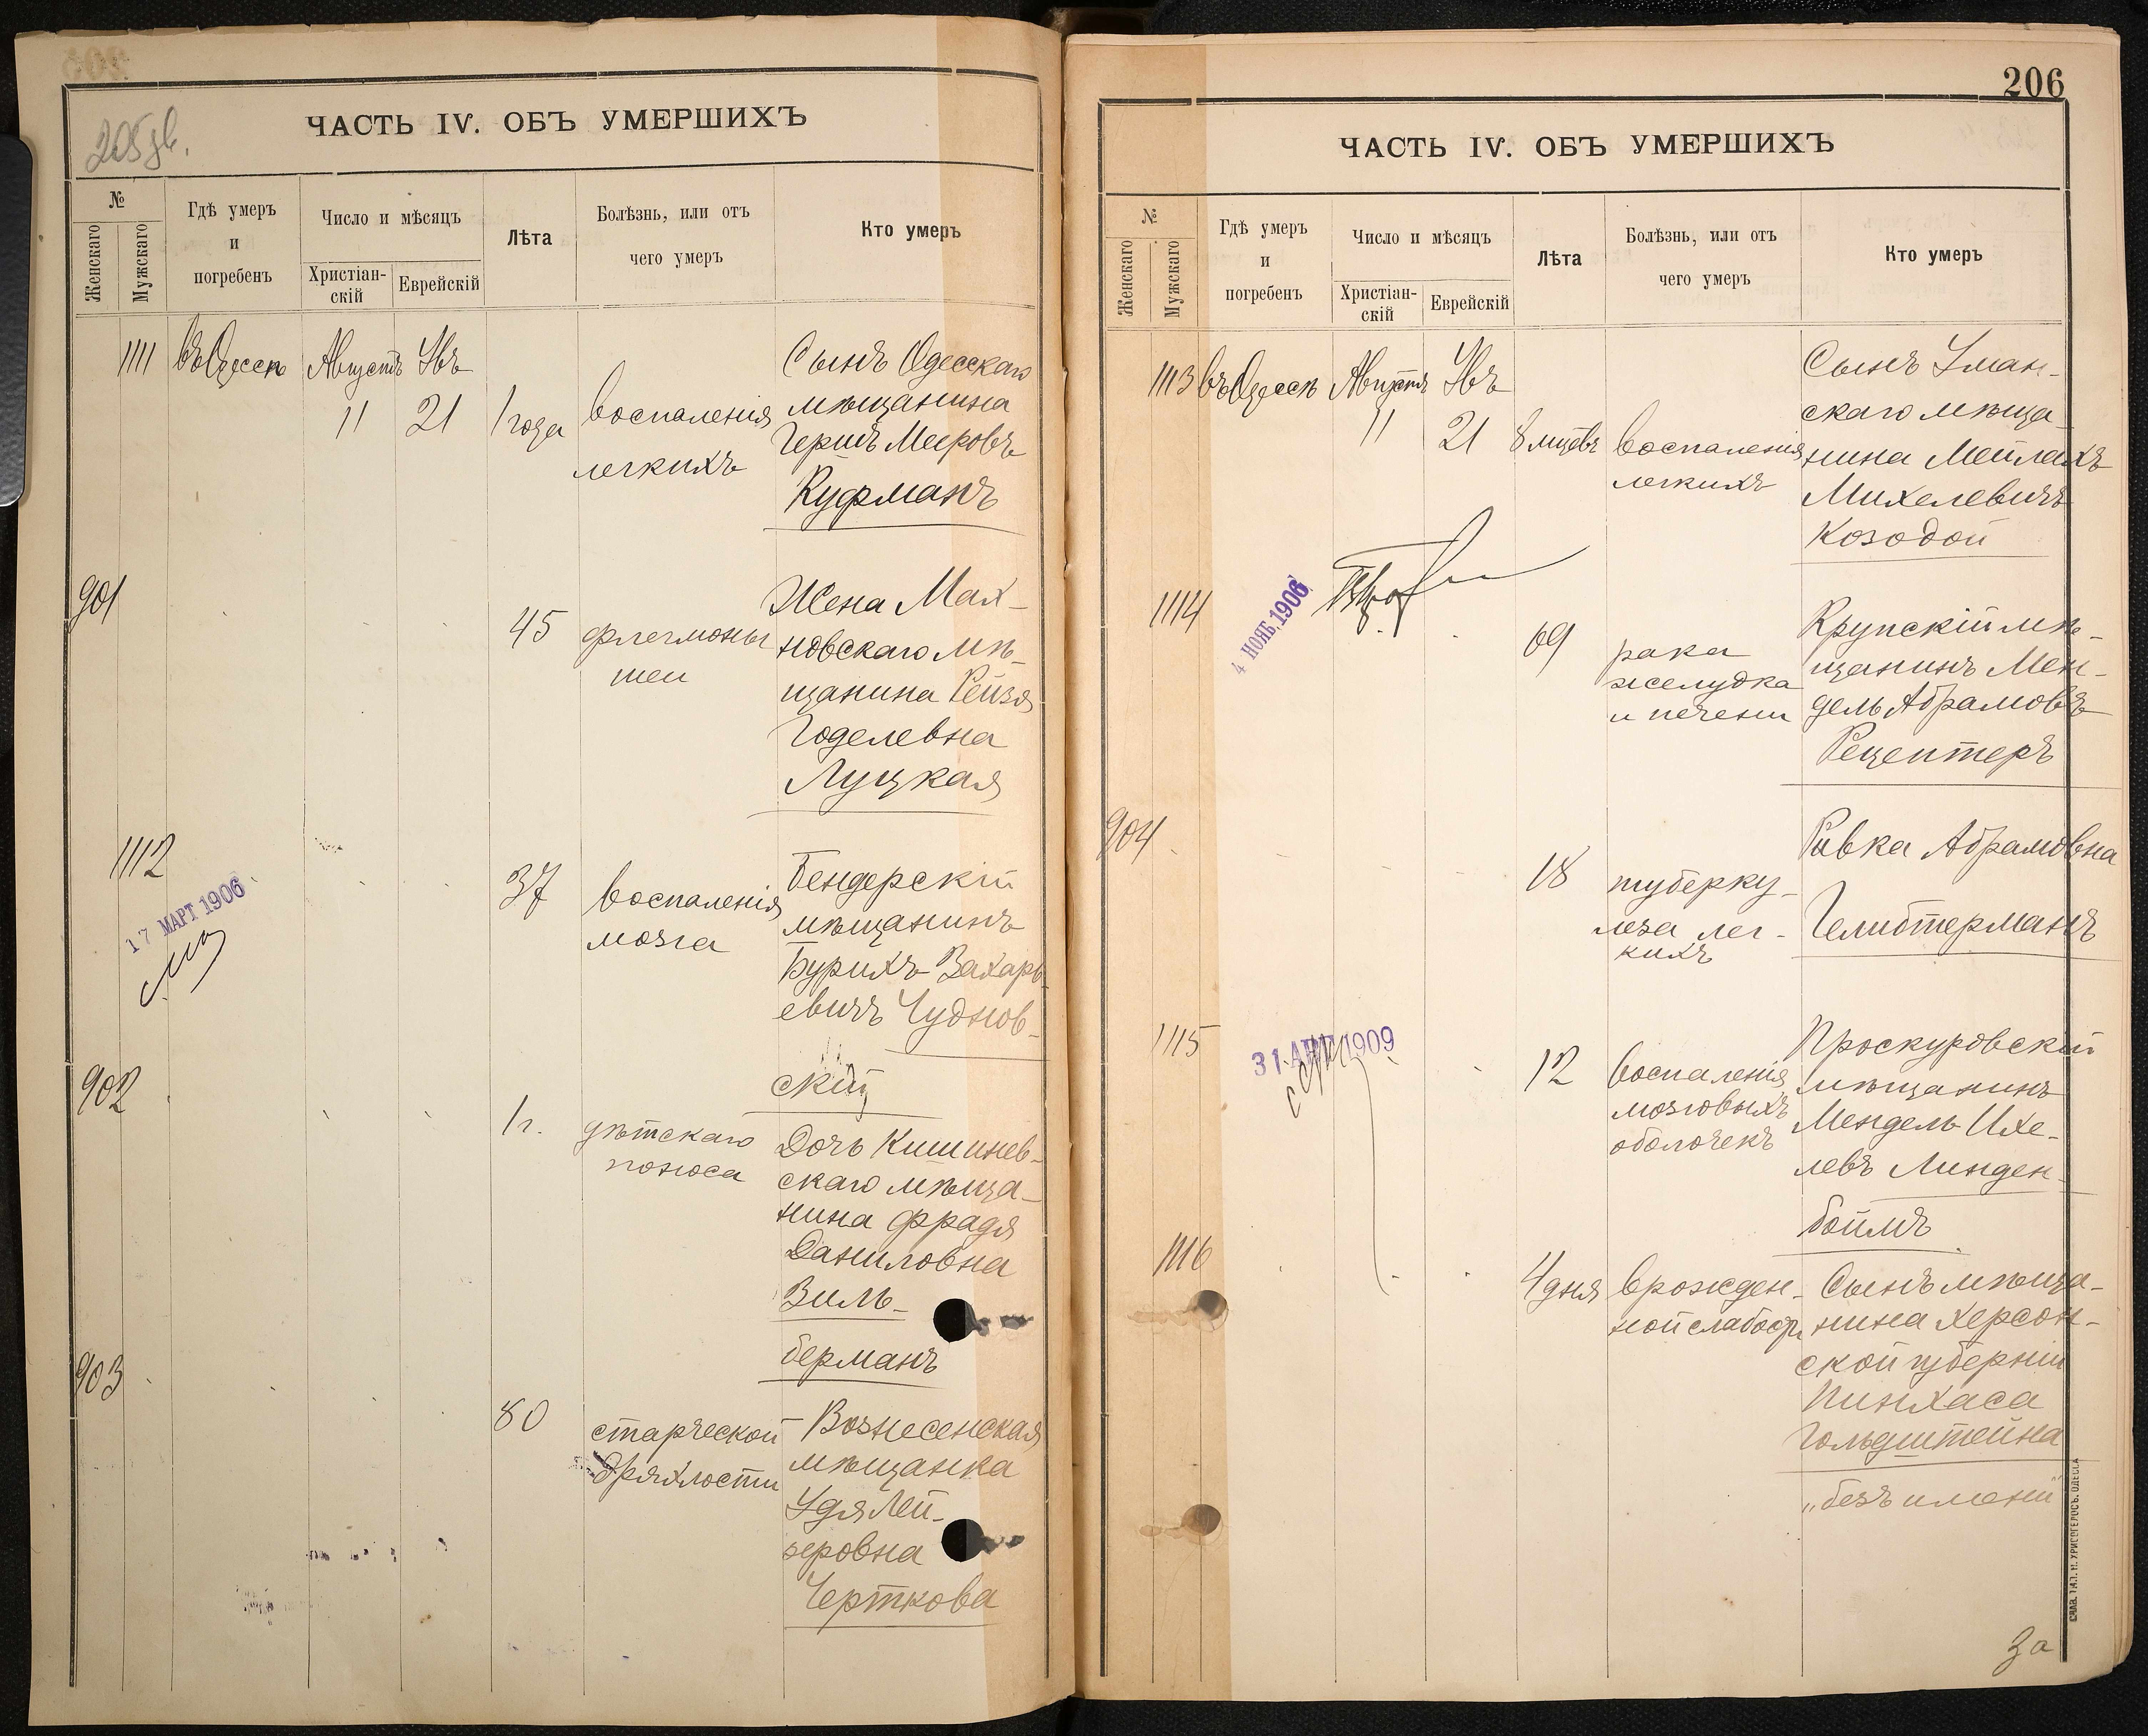 205 зв.
ЧАСТЬ IV. ОБЪ УМЕРШИХЪ
№
Женскаго
Мужскаго
Гдѣ умеръ
и
погребенъ
Число и мѣсяцъ
Христіан-
скій
Еврейскій
Лѣта
Болѣзнь, или отъ
чего умеръ
Кто умеръ
1111
въ Одессѣ
Августъ
11
Увъ
21
1 года
воспаленія
легкихъ
Сынъ Одесскаго
мѣщанина
Гершъ Мееровъ
Куфманъ
901
45
флегмоны
шеи
Жена Мах-
новскаго мѣ-
щанина Рейзя
Годелевна
Луцкая
1112
17 МАРТ 1906
37
воспаленія
мозга
Бендерскій
мѣщанинъ
Бурихъ Захарь-
евичъ Чуднов-
скій
902
1 г.
дѣтскаго
поноса
Дочь Кишинев-
скаго мѣща-
нина Фрадя
Даниловна
Зиль-
берманъ
903
80
старческой
дряхлости
Вознесенская
мѣщанка
Удя Лей-
зеровна
Черткова
206
ЧАСТЬ IV. ОБЪ УМЕРШИХЪ
№
Женскаго
Мужскаго
Гдѣ умеръ
и
погребенъ
Число и мѣсяцъ
Христіан-
скій
Еврейскій
Лѣта
Болѣзнь, или отъ
чего умеръ
Кто умеръ
1113
въ Одессѣ
Августъ
11
Увъ
21
8 мцевъ
воспаленія
легкихъ
Сынъ Уман-
скаго мѣща-
нина Мейлахъ
Михелевичъ
Козодой
1114
4 НОЯБ. 1906
69
рака
желудка
и печени
Крупскій мѣ-
щанинъ Мен-
дель Абрамовъ
Рецептеръ
904
18
туберку-
леза лег-
кихъ
Ривка Абрамовна
Гелибтерманъ
1115
31 АВГ 1909
12
воспаленія
мозговыхъ
оболочекъ
Проскуровскій
мѣщанинъ
Мендель Ихе-
левъ Линден-
боймъ
1116
4 дня
врожден-
ной слабости
Сынъ мѣща-
нина Херсон-
ской губерніи
Пинхаса
Гольдштейна
„безъ имени"
За
СЛАВ. ТИП. Н. ХРИСОГЕЛОСЪ. ОДЕССА